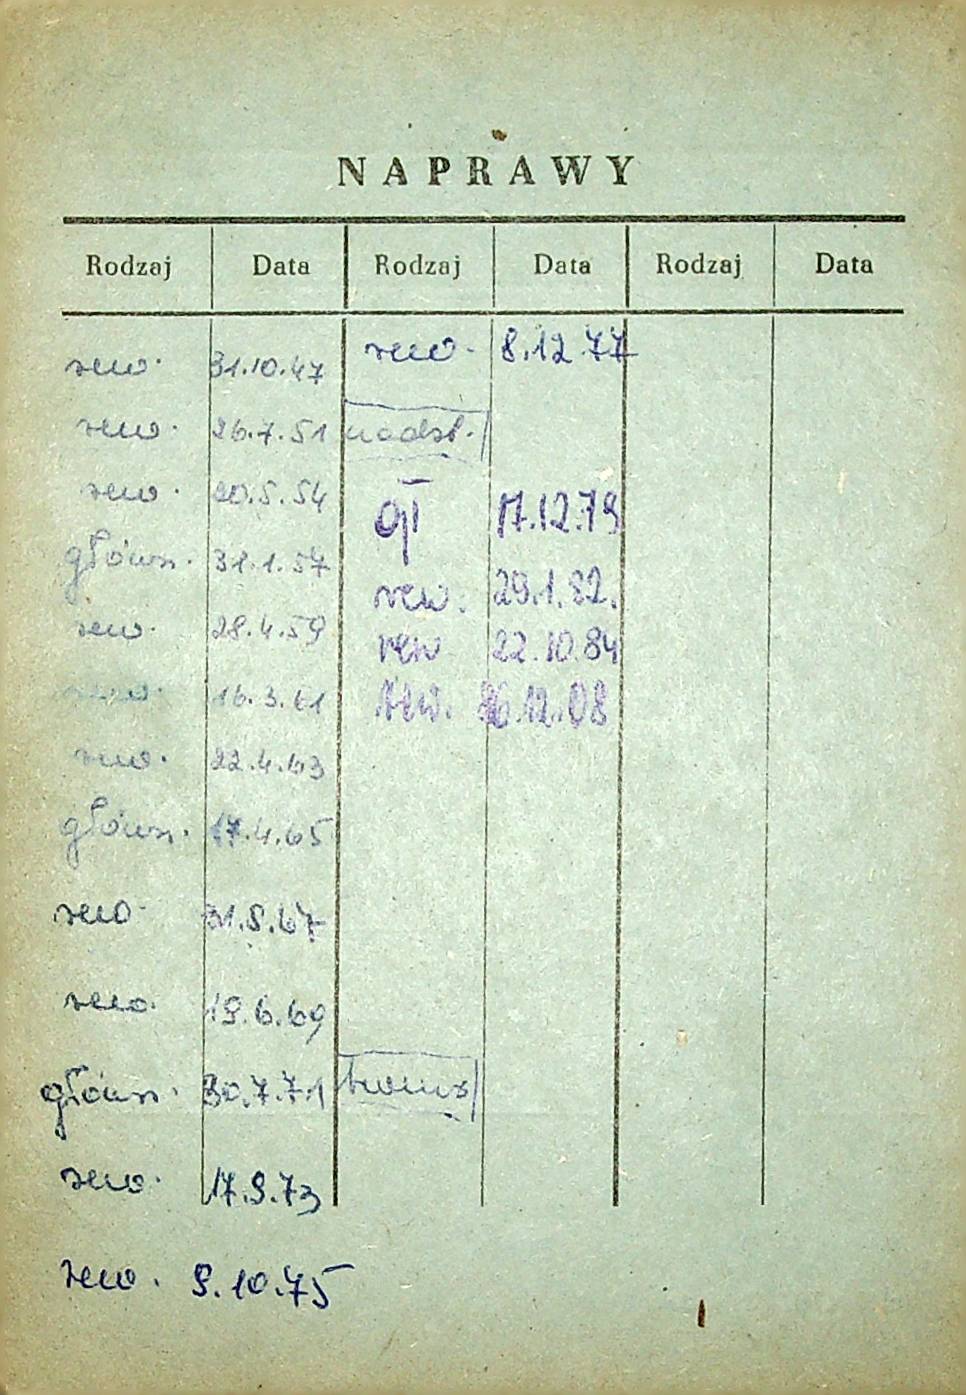 NAPRAWY
Rodzaj Data Rodzaj Data Rodzaj Data
rew. 31.10.47 rew. 8.12.77
rew. 26.7.51 nadst.
rew. 20.5.54 gł 17.12.79
główn. 31.1.57 rew. 29.1.82.
rew. 28.4.59 rew 22.10.84
rew. 16.3.61 rew.
rew. 22.4.63
główn. 17.4.65
rew. 31.8.67
rew. 19.6.69
główn. 30.7.71
rew. 17.9.73
rew. 9.10.75